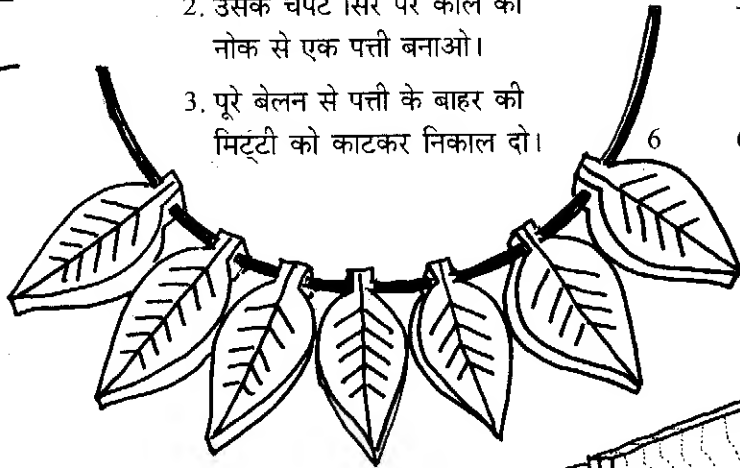 2. उसके चपटे सिरे पर कील की
नोक से एक पत्ती बनाओ।
3. पूरे बेलन से पत्ती के बाहर की
मिट्टी को काटकर निकाल दो।
6